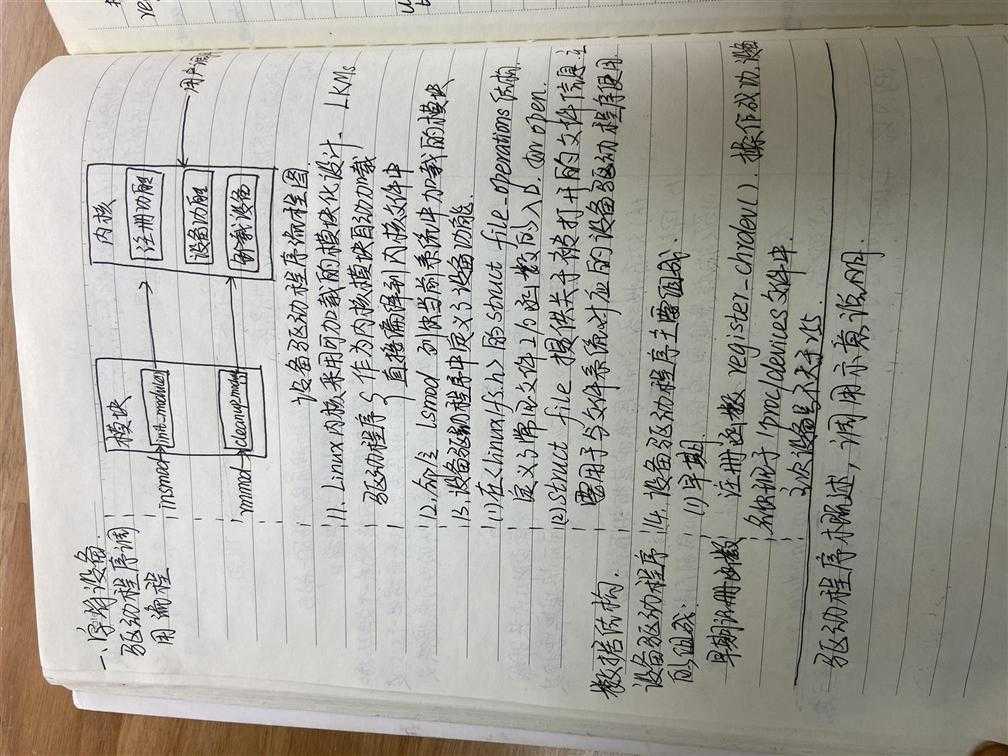 一、字符设备
驱动程序调
用流程
模块
内核
insmod
init_module
注册功能
设备功能
用户调
rmmod
cleanup_module
卸载设备
设备驱动程序流程图
11、Linux内核采用可加载的模块化设计、LKMs
驱动程序 作为内核模块自动加载
直接编译到内核文件中
12、命令 lsmod 列出当前系统中加载的模块
13、设备驱动程序中定义了设备功能
(1)在<linux/fs.h>的struct file_operations结构
定义了常见文件I/O函数的入口. open
数据结构.
(2)struct file 提供关于被打开的文件信息 主
要用于与文件系统对应的设备驱动程序使用
设备驱动程序
的组成.
14、设备驱动程序主要组成.
(1)早期
早期注册函数
注册函数 register_chrdev(). 操作成功,设备
名出现于/proc/devices文件中.
次设备号不大于255
驱动程序概述,调用示意说明.